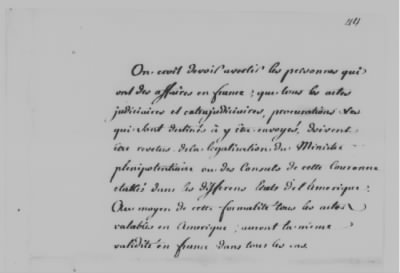 44
On croit devoir avertir les personnes qui
ont des affaires en france; que tous les actes
judiciaires et extrajudiciaires, procurations &ca
qui sont destinés à y être envoyés, doivent
être revetus de la legalisation du Ministre
plenipotentiaire ou des Consuls de cette Couronne
etablis dans les differens Etats de l'Amerique;
Au moyen de cette formalité tous les actes
valables en Amerique; auront la même
validité en france dans tous les cas.